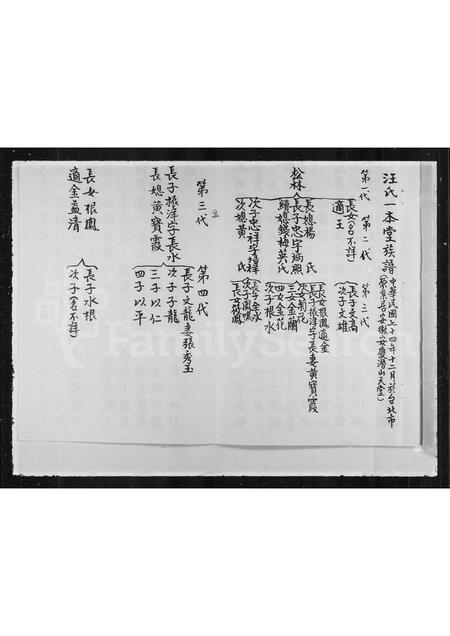 汪氏一本堂族譜
中華民國七十四年十二月於台北市
(原籍吾安徽安慶潛山天堂)
第一代 第二代 第三代
長女(名不詳)
適王
長子文高
次子文雄
松林
長媳楊氏
長子忠字炳照
續媳錢梅英氏
次子忠祥字
次媳黃氏
長女根鳳適金
長子振洋字長水妻黃寶霞
次女菊花
三女金蘭
四女金花
次子根水
長子金水
次子鳳鳴
第三代 第四代
長子振洋字長水
長媳黃寶霞
長子文龍妻張秀玉
次子子龍
三子以仁
四子以平
長女根鳳
適金益清
長子水根
次子(名不詳)
FamilySearch